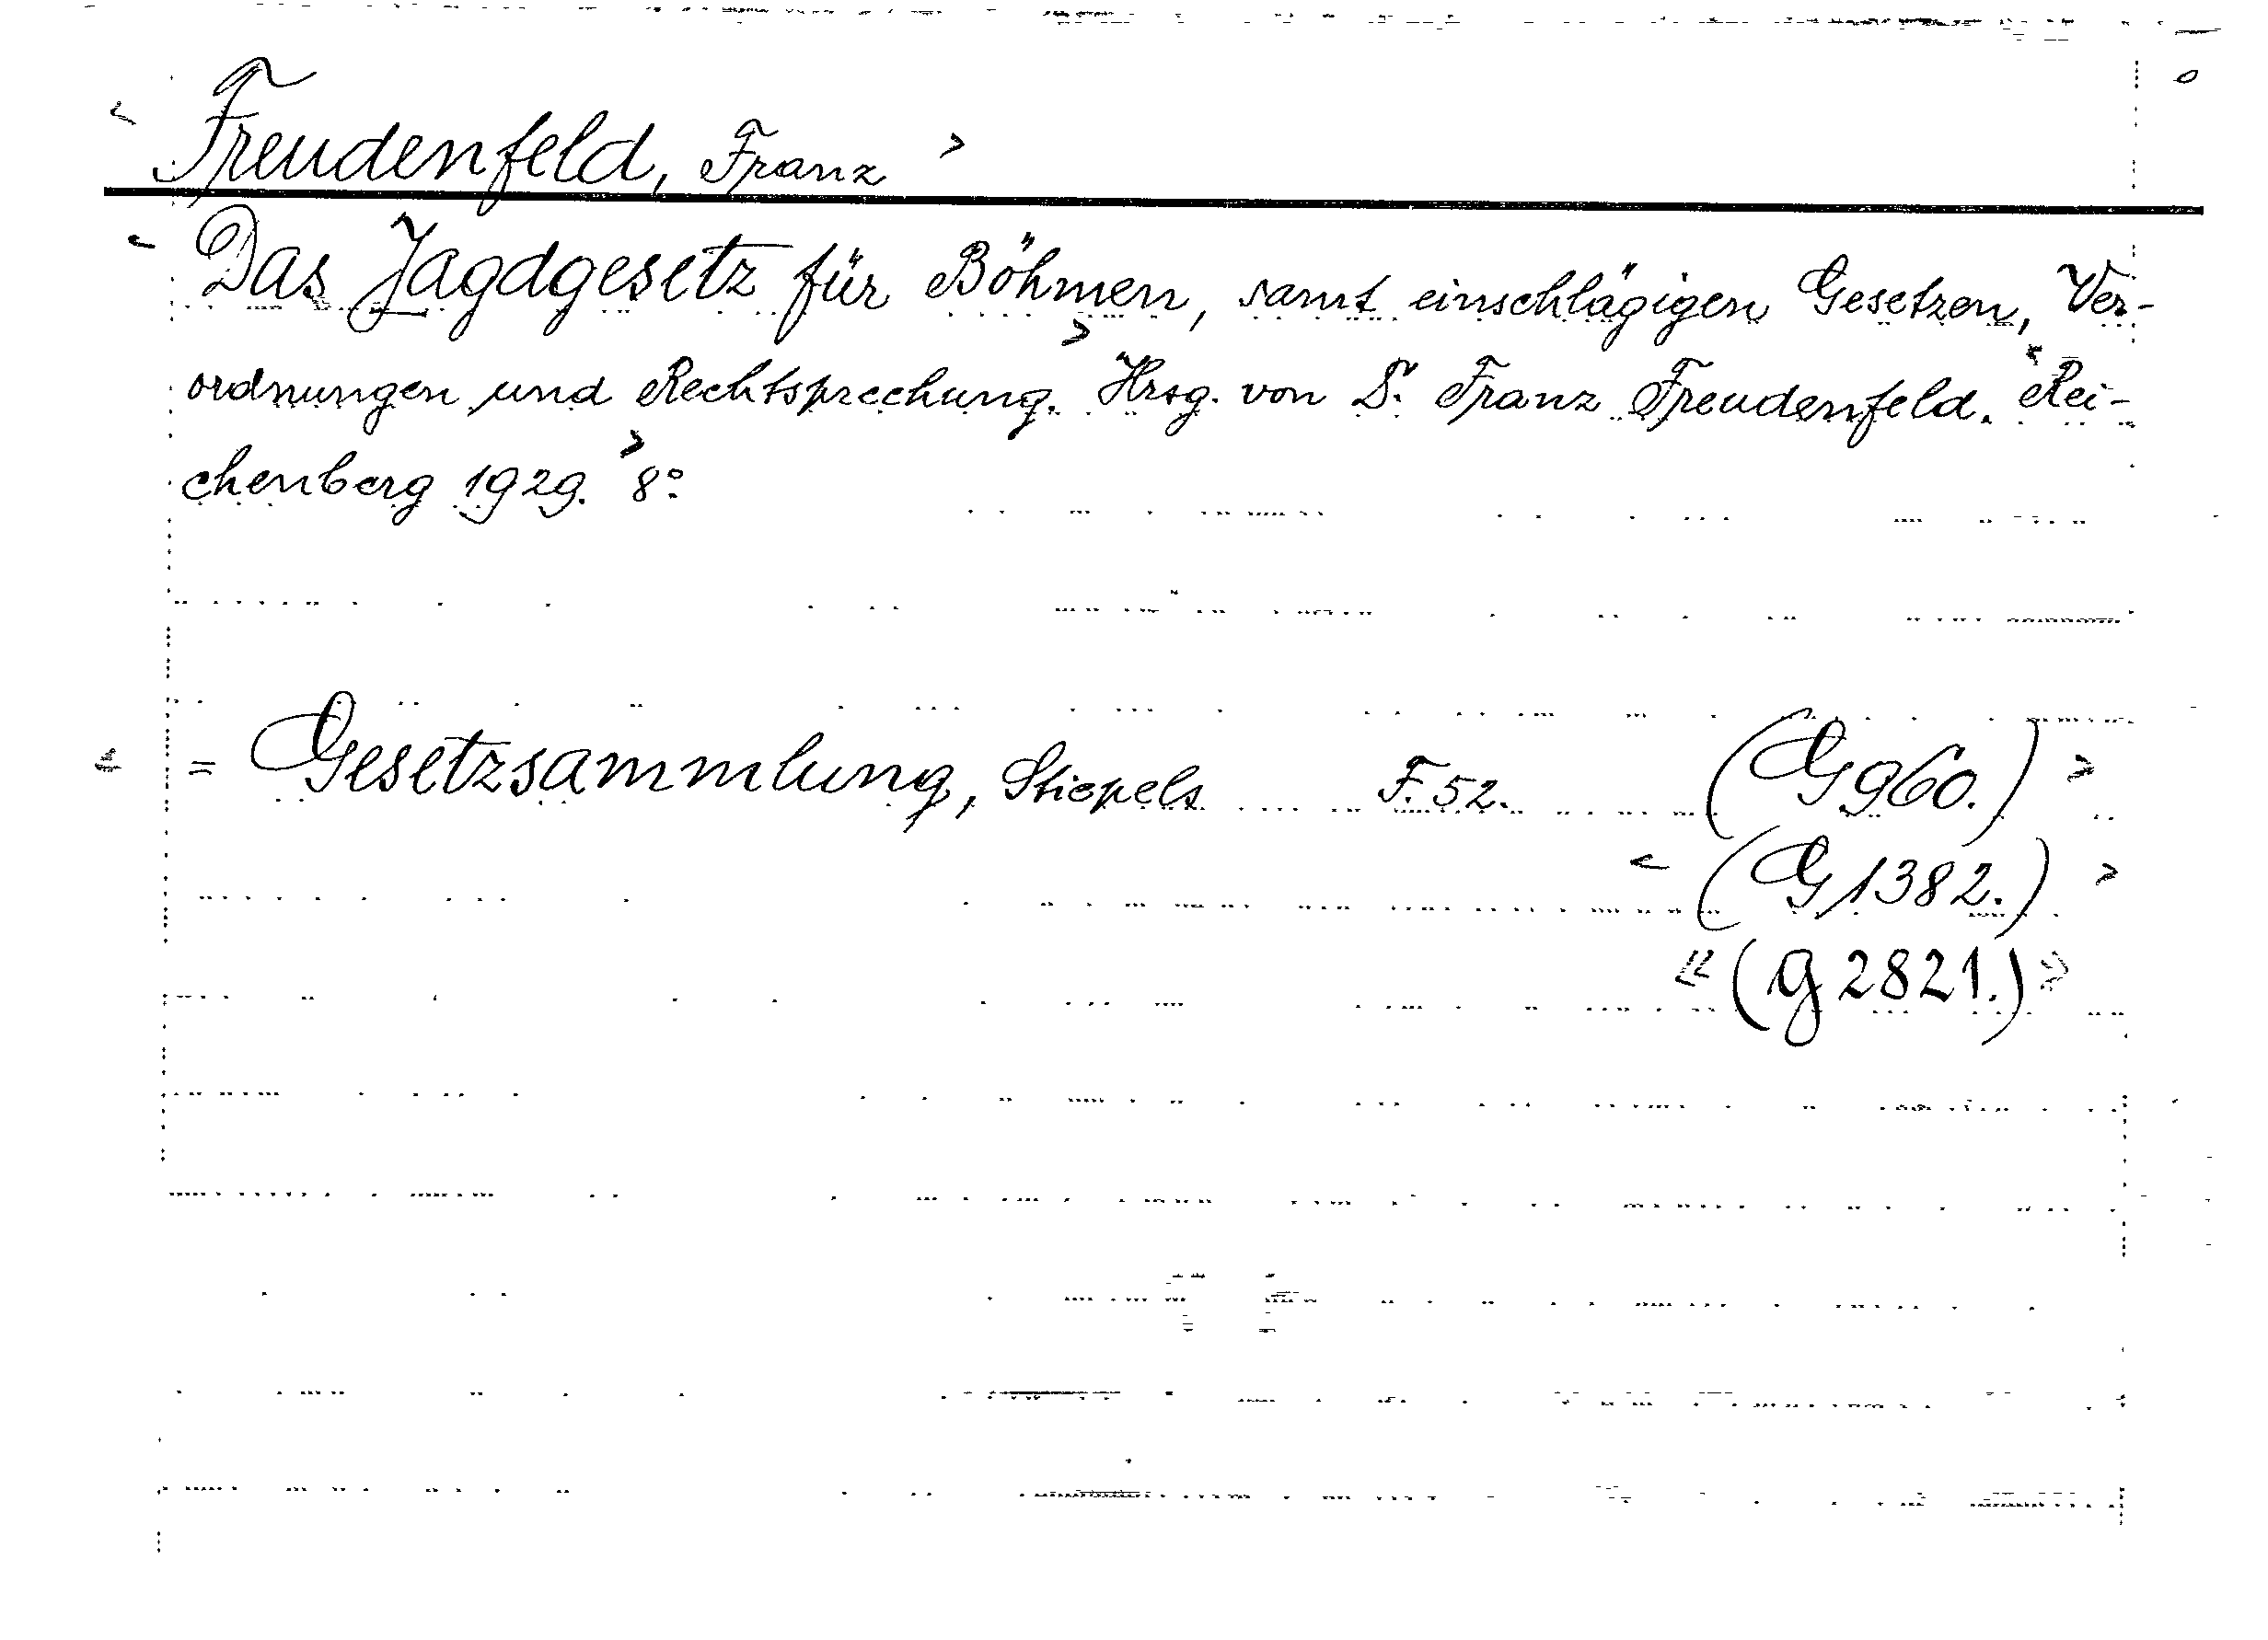 < Freudenfeld, Franz >
< Das Jagdgesetz für Böhmen, samt einschlägigen Gesetzen, Ver-
ordnungen und Rechtsprechung. > Hrsg. von Dr. Franz Freudenfeld. < Rei-
chenberg 1929. > 8°.
< = Gesetzsammlung, Stiepels F. 52. (G 960.) >
< (G 1382.) >
« (G 2821.) »